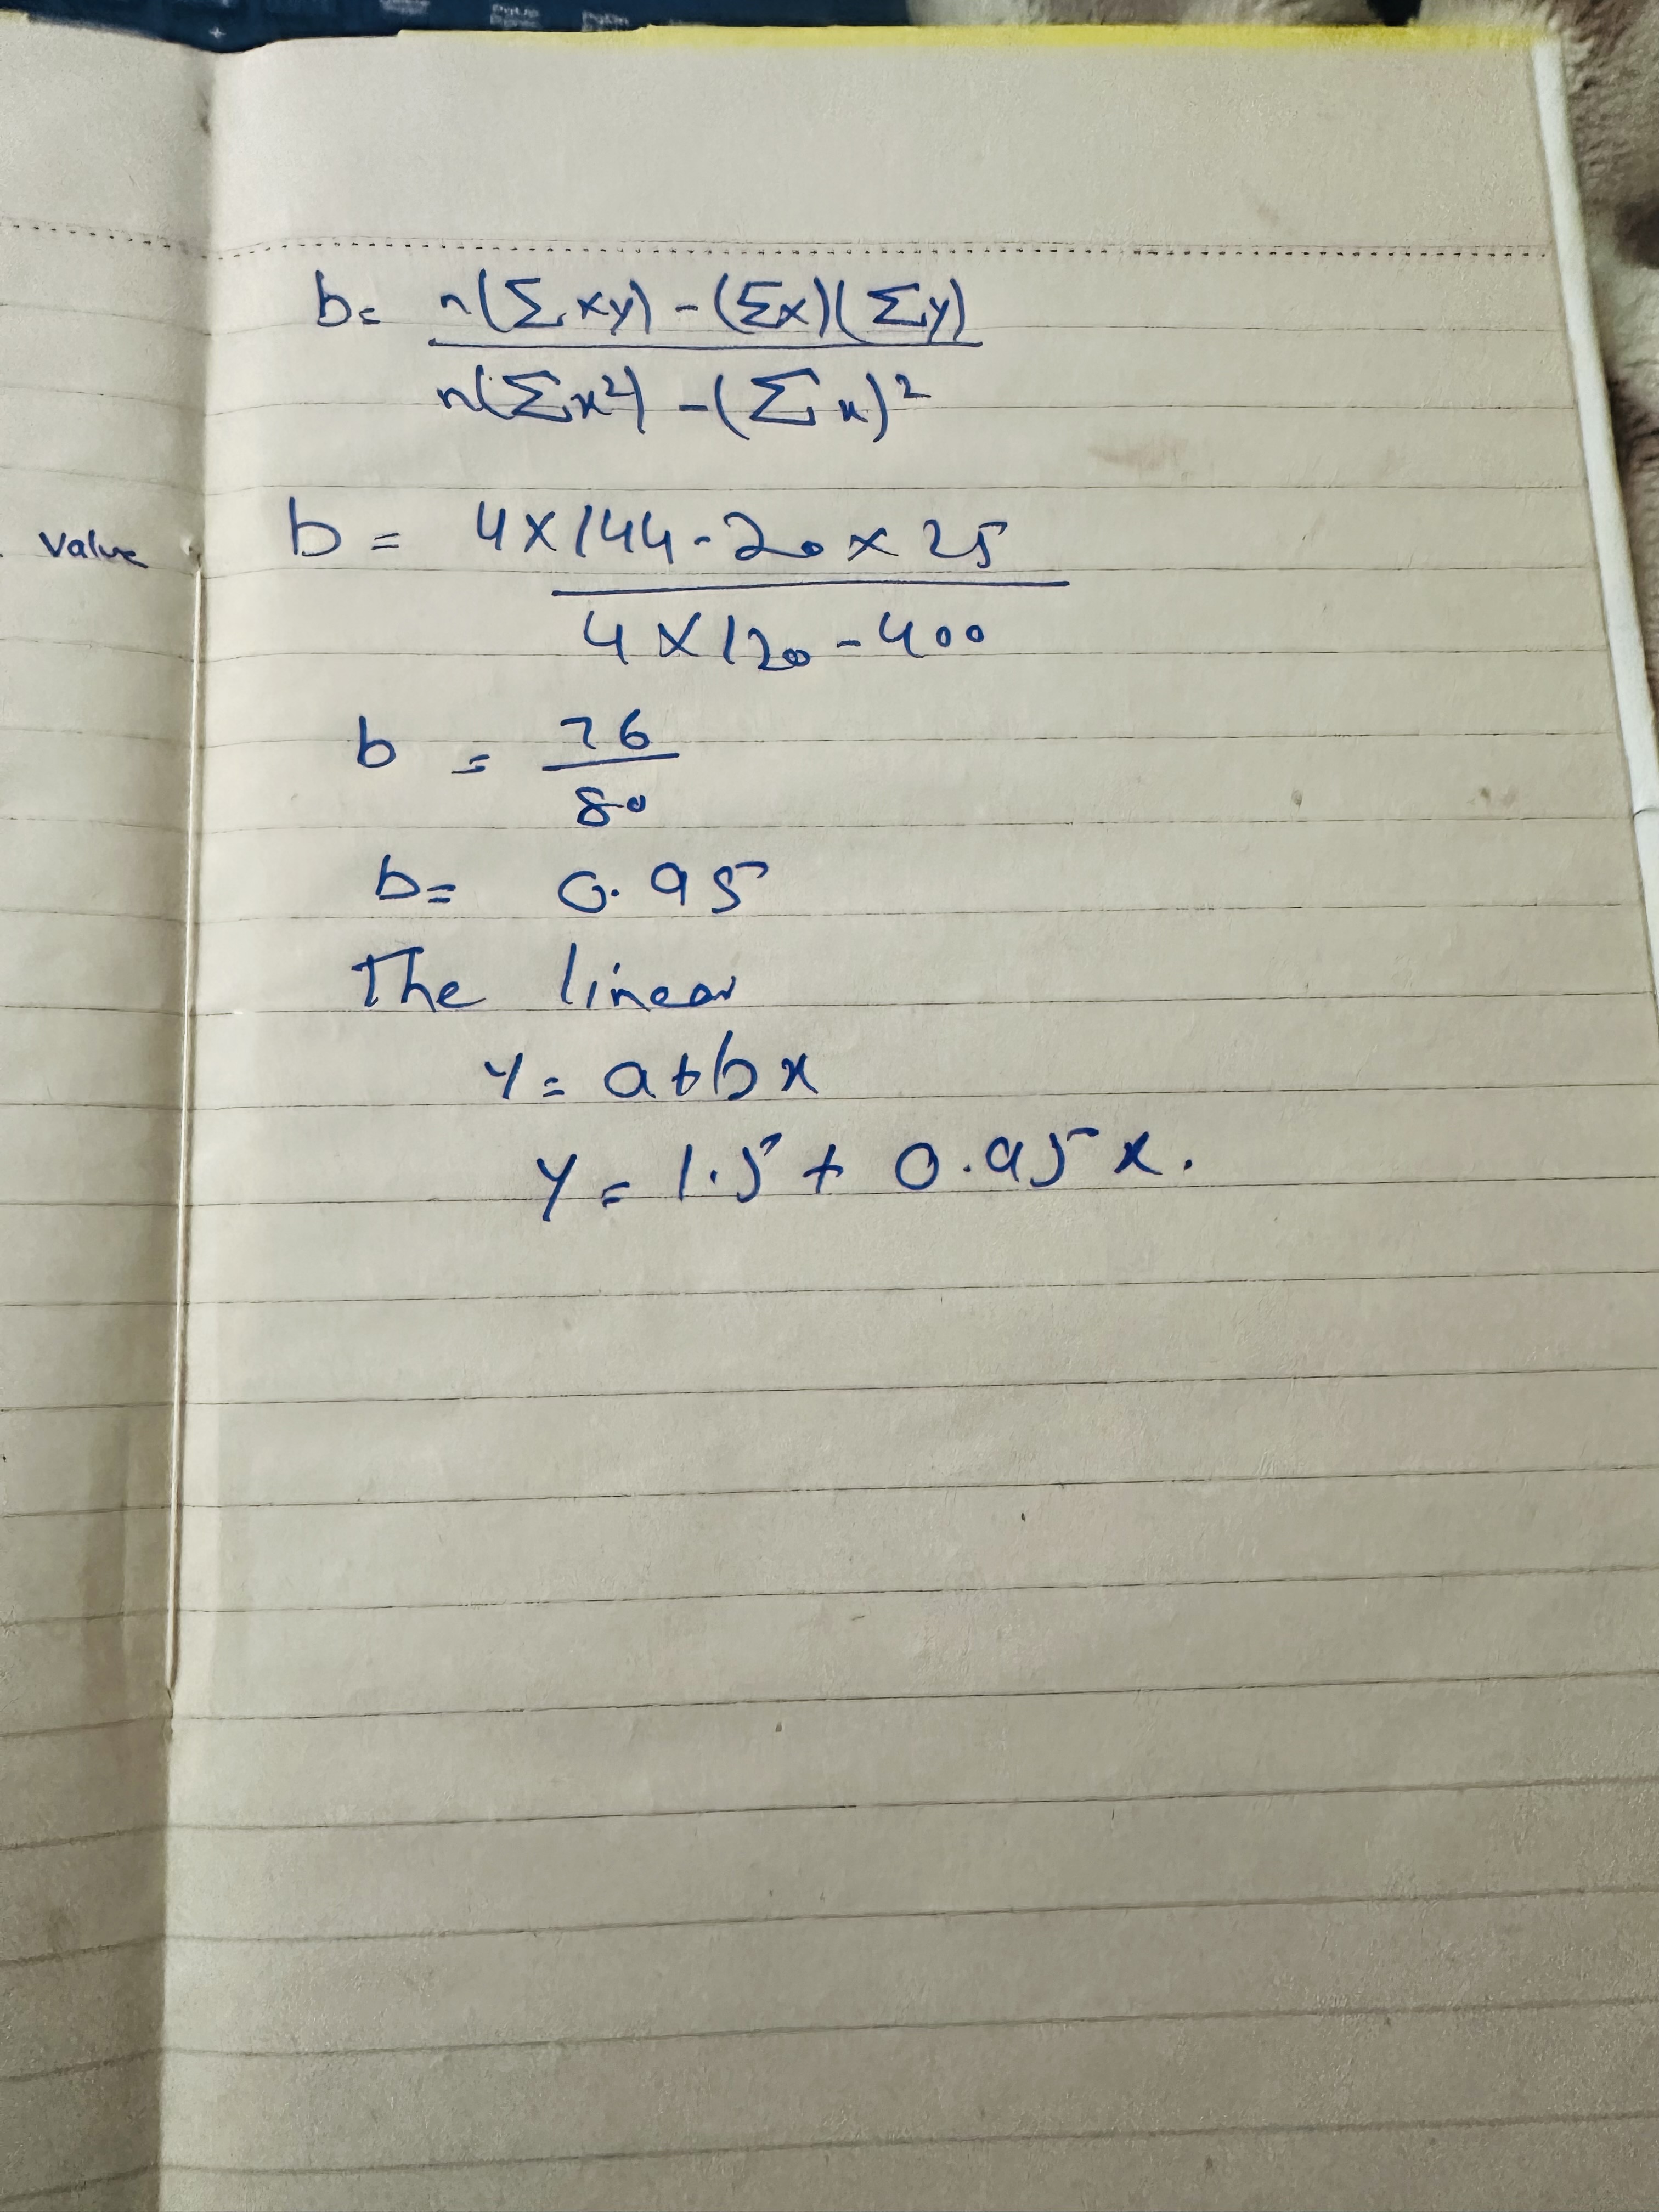 b= n(∑xy) - (∑x)(∑y)
n(∑x²) - (∑x)²
Value
b = 4×144-20×25
4×120-400
b = 76
80
b= 0.95
The linear
y= a+bx
y= 1.5+ 0.95x.